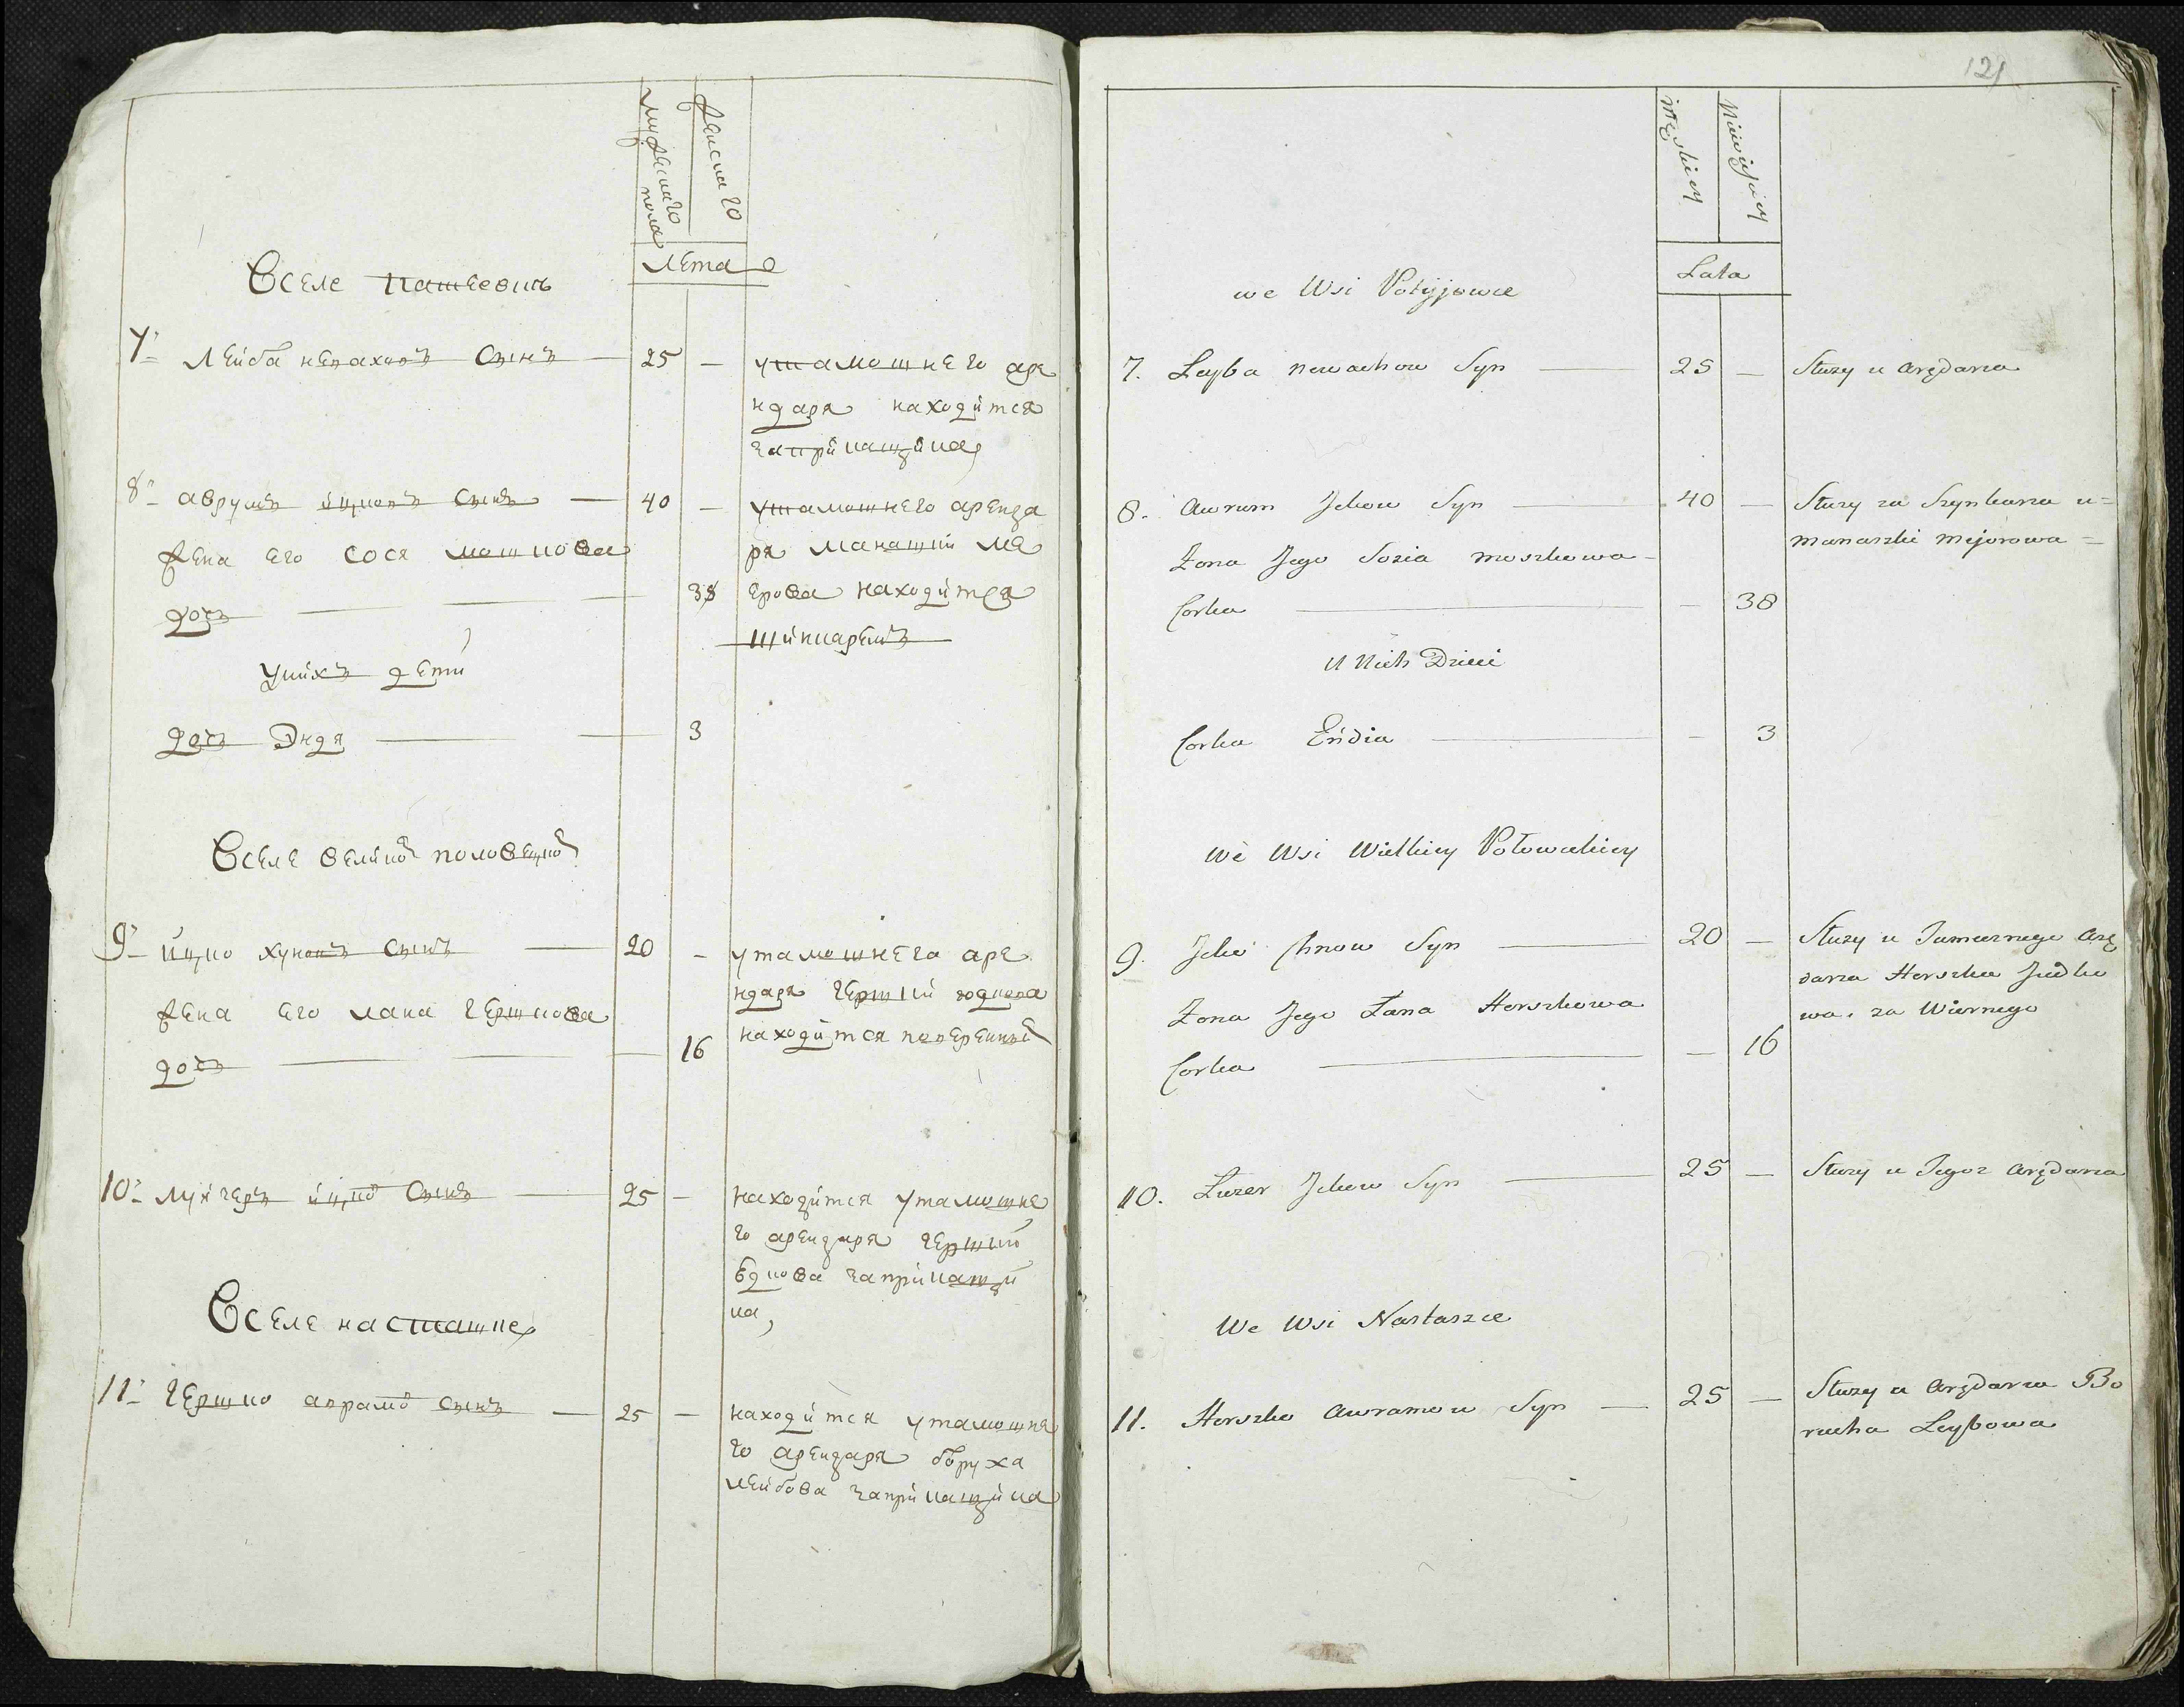 мужеского пола
женскаго
лета
Вселе
7. Лейба сынъ — 25 — утамошнего аре
ндаря находится
заприкащика
8. аврумъ ицковъ сынъ — 40 — утамошнего аренда
жена его сося мошкова
ря манашки ме
дочь — 38
ерова находится
шинкаремъ
уних дети
дочь Эндя — 3
Вселе великой половецкой
9. ицко хуновъ сынъ — 20 — утамошнего аре
ндаря гершки юдкова
жена его лана гершкова
находится
дочь — 16
10. ицков сынъ — 25 — находится утамошне
го арендаря гершки
юдкова заприкащи
ка,
Вселе насташке
11. гершко аврамов сынъ — 25 — находится утамошне
го арендаря боруха
лейбова заприкащика
121
męskiey
Niewiesciey
Lata
we Wsi
7. Leyba Syn — 25 — Służy u Arędarza
8. Awrum Jckow Syn — 40 — Służy za Szynkarza u
manaszki mejorowa
Żona Jego Sosia moszkowa
Corka — 38
U Nich Dzieci
Corka Endia — 3
we Wsi Wielkiey Połowieckiey
9. Jcko Chunow Syn — 20 — Służy u Tamecznego Arę
darza Herszka Judko
Żona Jego Łana Herszkowa
wa. za Wiernego
Corka — 16
10. Luzer Jckow Syn — 25 — Służy u Tegoż Arędarza
We Wsi Nastaszce
11. Herszko Awramow Syn — 25 — Służy u Arędarza Bo
rucha Leybowa